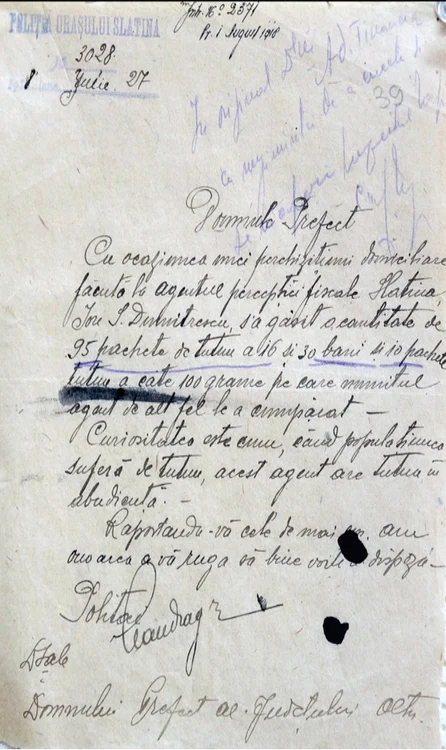 POLIȚIA ORAȘULUI SLATINA
3028
8 Iulie 27
Intr. No 2371
Pr. 1 August 1918
39
Domnule Prefect
Cu ocaziunea unei perchizitiuni domiciliare
facuta la agentul perceptiei fiscale Slatina
Ion I. Dumitrescu, s'a găsit o cantitate de
95 pachete de tutun a 16 si 30 bani si 10 pachete
tutun a cate 100 grame pe care numitul
agent de alt fel le a cumpărat —
Curiositatea este cum, când populatiunea
suferă de tutun, acest agent are tutun in
abudiență. —
Raportandu-vă cele de mai sus, am
onoarea a vă ruga să bine voiti a dispoza—
Politai
Dsale
Domnului Prefect al Judetului Olt